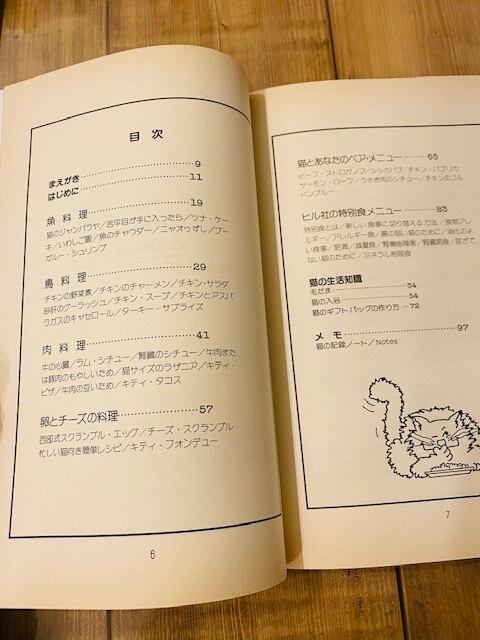 目次
まえがき………………9
はじめに………………11
魚料理………………19
猫のジャンバラヤ／舌平目が手に入ったら／ツナ・ケー
キ／いわしご飯／魚のチャウダー／ニャオっずし／ブー
ガルー・シュリンプ
鳥料理………………29
チキンの野菜煮／チキンのチャーメン／チキン・サラダ
砂肝のグーラッシュ／チキン・スープ／チキンとアスパ
ラガスのキャセロール／ターキー・サプライズ
肉料理………………41
牛の心臓／ラム・シチュー／腎臓のシチュー／牛肉また
は豚肉のもやしいため／猫サイズのラザニア／キティ・
ピザ／牛肉の豆いため／キティ・タコス
卵とチーズの料理………………57
西部式スクランブル・エッグ／チーズ・スクランブル
忙しい猫向き簡単レシピ／キティ・フォンデュー
6
猫とあなたのペア・メニュー………65
ビーフ・ストロガノフ／シシカバブ／チキン・パプリカ
サーモン・ローフ／うさぎ肉のシチュー／チキンのコル
ドンブルー
ヒル社の特別食メニュー………83
特別食とは／新しい食事に切り替える方法／食物アレ
ルギー／アレルギー食／腸の弱い猫のために／消化のよ
い食事／肥満／減量食／腎機能障害／腎臓病食／尿がで
ない猫のために／ミネラル制限食
猫の生活知識
毛だま………………34
猫の入浴………………54
猫のギフトバッグの作り方……72
メモ………………97
猫の記録ノート／Notes
7